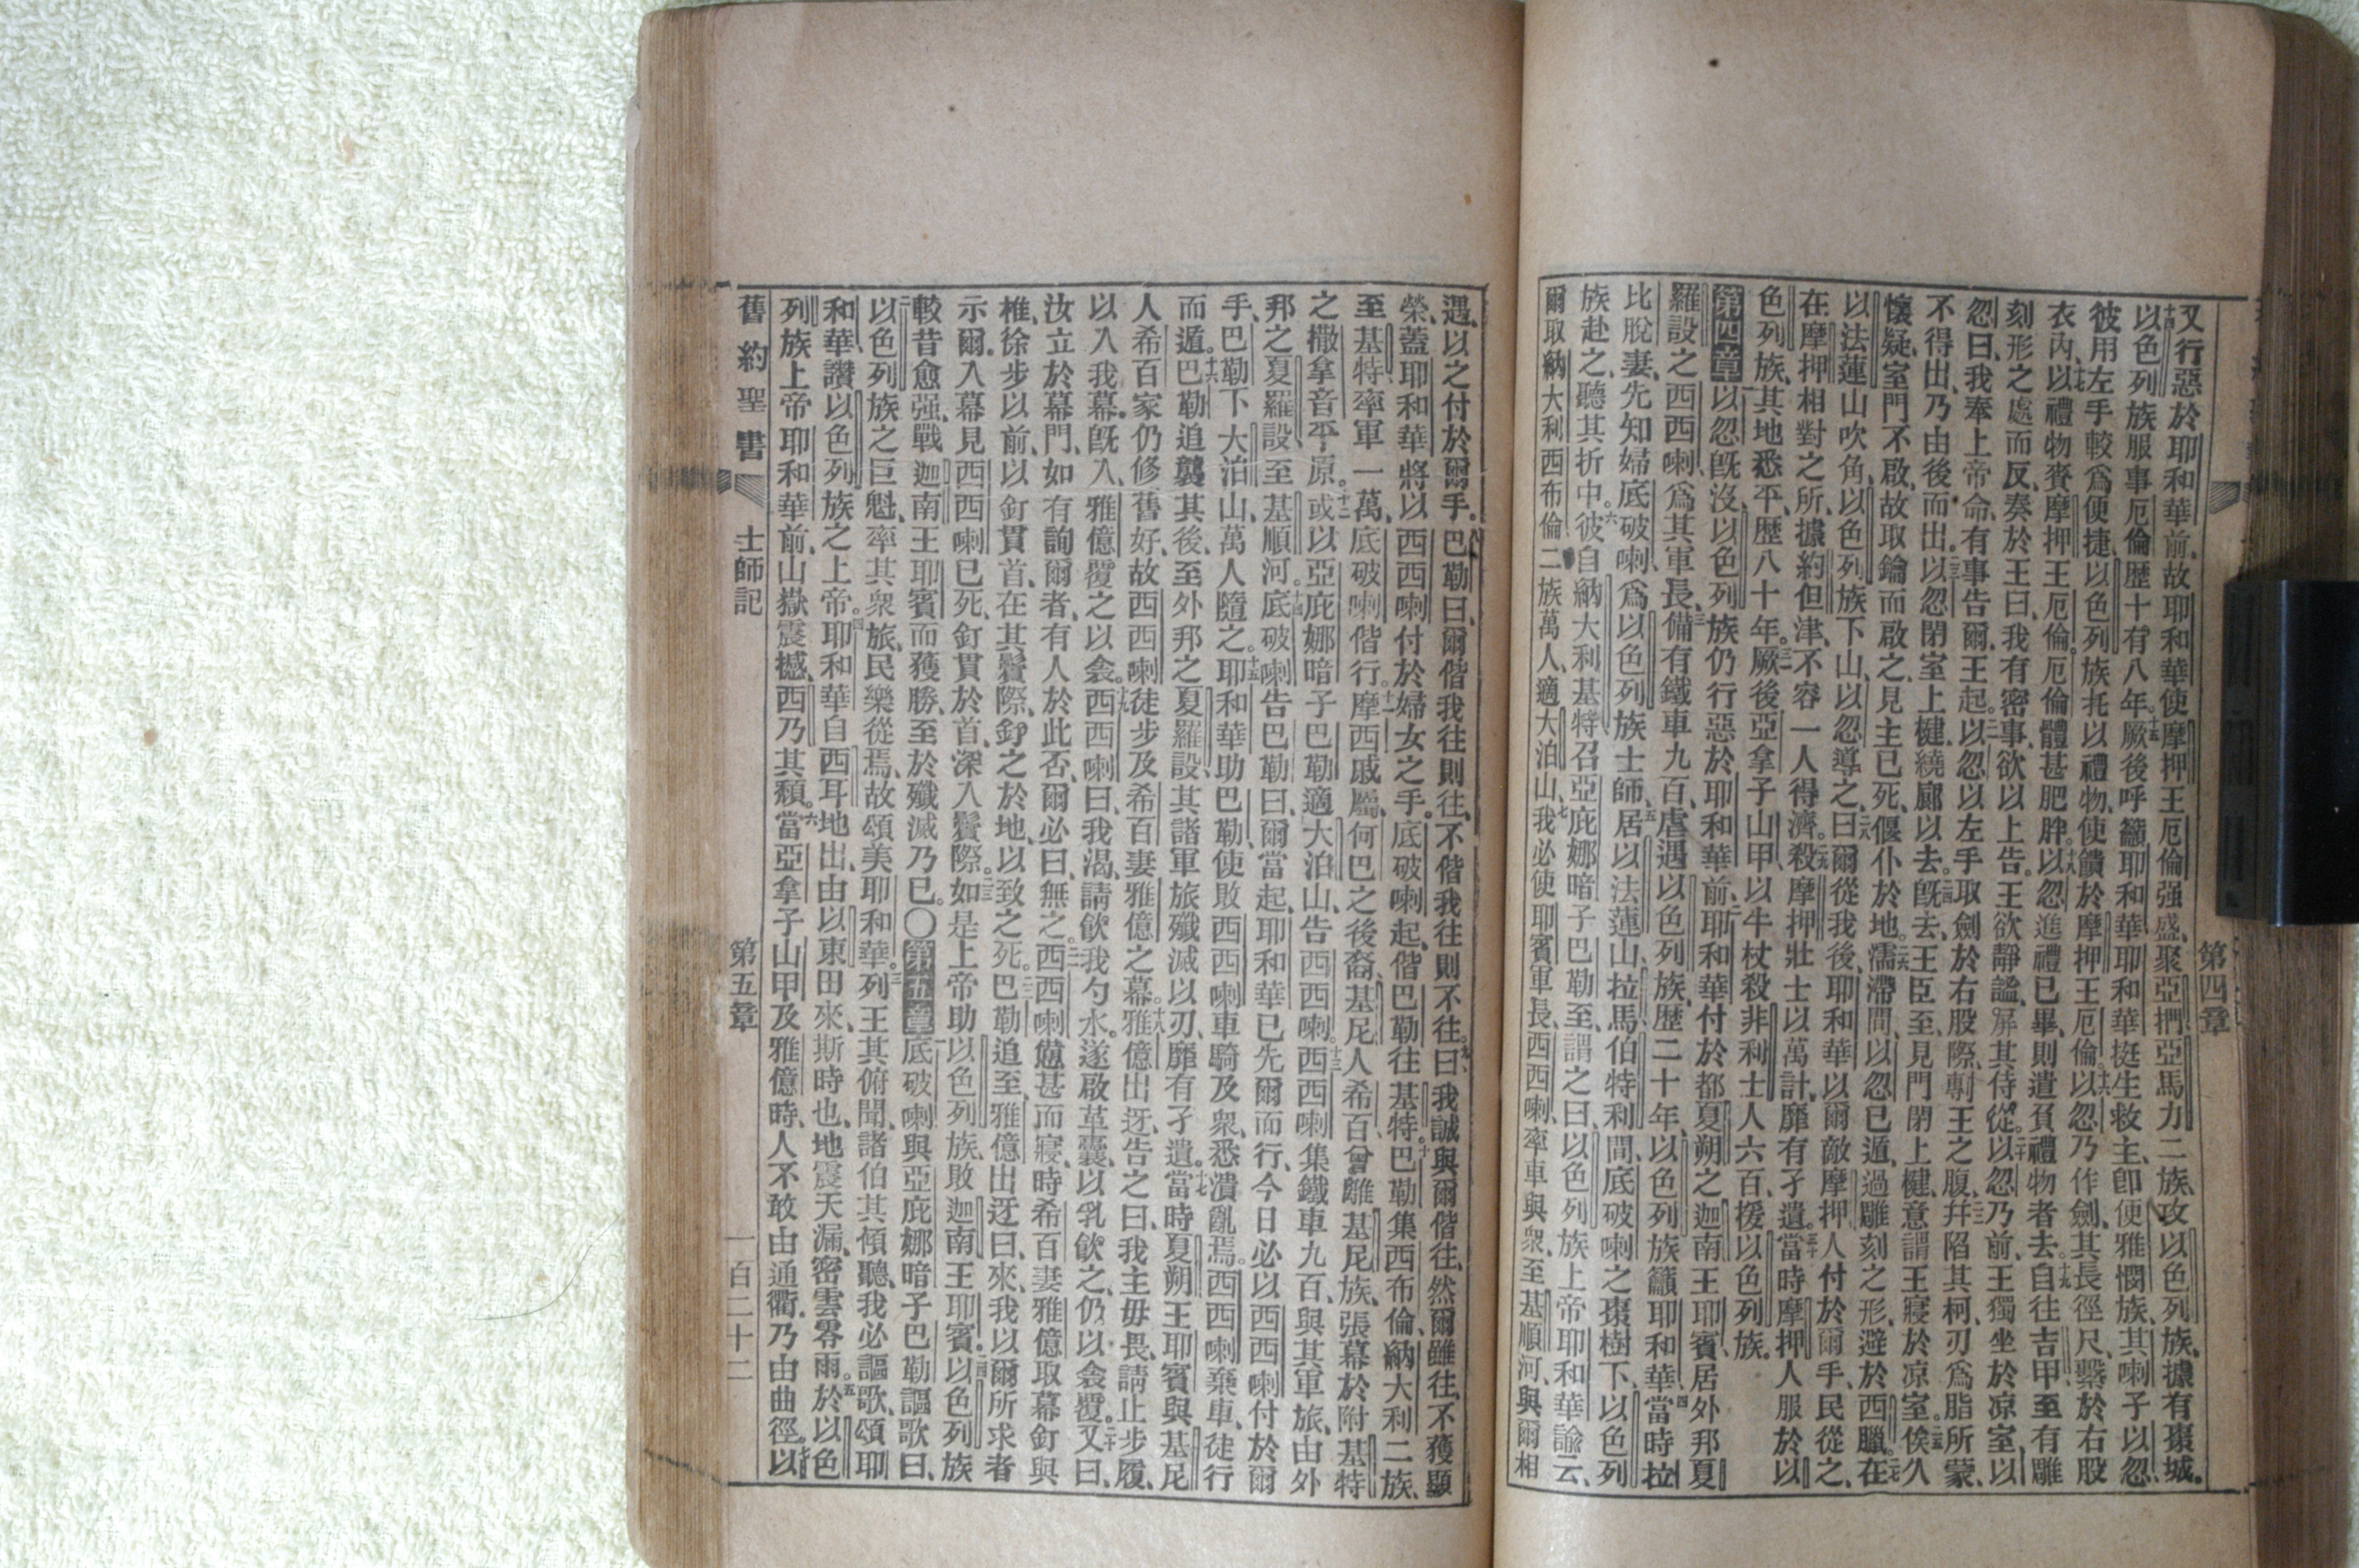 第四章
又行惡於耶和華前、故耶和華使摩押王厄倫强盛、聚亞捫亞馬力二族、攻以色列族、據有棗城、
以色列族服事厄倫、歷十有八年、厥後呼籲耶和華、耶和華挺生救主、卽便雅憫族、其喇子以忽
彼用左手較爲便捷、以色列族托以禮物、使饋於摩押王厄倫、以忽乃作劍、其長徑尺、繫於右股
衣內、以禮物賚摩押王厄倫、厄倫體甚肥胖、以忽進禮已畢、則遣負禮物者去、自往吉甲、至有雕
刻形之處而反、奏於王曰、我有密事、欲以上告、王欲靜謐、屏其侍從、以忽乃前、王獨坐於凉室、以
忽曰、我奉上帝命、有事告爾、王起、以忽以左手取劍於右股際、剚王之腹、幷陷其柯、刃爲脂所蒙、
不得出、乃由後而出、以忽閉室上楗、繞廊以去、旣去、王臣至、見門閉上楗、意謂王寢於凉室、俟久
懷疑、室門不啟、故取鑰而啟之、見主已死、偃仆於地、濡滯間、以忽已遁、過雕刻之形、避於西臘、在
以法蓮山吹角、以色列族下山、以忽導之、曰、爾從我後、耶和華以爾敵摩押人付於爾手、民從之、
在摩押相對之所、據約但津、不容一人得濟、殺摩押壯士以萬計、靡有孑遺、當時摩押人服於以
色列族、其地悉平、歷八十年、厥後亞拿子山甲、以牛杖殺非利士人六百、援以色列族、
第四章以忽旣沒、以色列族仍行惡於耶和華前、耶和華付於都夏朔之迦南王耶賓、居外邦夏
羅設之西西喇、爲其軍長、備有鐵車九百、虐遇以色列族、歷二十年、以色列族籲耶和華、當時拉
比脫妻、先知婦底破喇、爲以色列族士師、居以法蓮山拉馬伯特利間、底破喇之棗樹下、以色列
族赴之、聽其折中、彼自納大利基特召亞庇娜暗子巴勒至、謂之曰、以色列族上帝耶和華諭云、
爾取納大利西布倫二族萬人、適大泊山、我必使耶賓軍長、西西喇、率車與衆、至基順河、與爾相
遇、以之付於爾手、巴勒曰、爾偕我往則往、不偕我往則不往、曰、我誠與爾偕往、然爾雖往、不獲顯
榮、蓋耶和華將以西西喇付於婦女之手、底破喇起、偕巴勒往基特、巴勒集西布倫、納大利二族、
至基特、率軍一萬、底破喇偕行、摩西戚屬、何巴之後裔、基尼人希百、曾離基尼族、張幕於附基特
之撒拿音平原、或以亞庇娜暗子巴勒適大泊山、告西西喇、西西喇集鐵車九百、與其軍旅、由外
邦之夏羅設至基順河、底破喇告巴勒曰、爾當起、耶和華已先爾而行、今日必以西西喇付於爾
手、巴勒下大泊山、萬人隨之、耶和華助巴勒、使敗西西喇車騎及衆、悉潰亂焉、西西喇棄車、徒行
而遁、巴勒追襲其後、至外邦之夏羅設、其諸軍旅殲滅以刃、靡有孑遺、當時夏朔王耶賓與基尼
人希百家仍修舊好、故西西喇徒步及希百妻雅億之幕、雅億出迓、告之曰、我主毋畏、請止步履、
以入我幕、旣入、雅億覆之以衾、西西喇曰、我渴、請飮我勺水、遂啟革囊、以乳飮之、仍以衾覆、又曰、
汝立於幕門、如有詢爾者、有人於此否、爾必曰、無之、西西喇憊甚而寢、時希百妻雅億取幕釘與
椎、徐步以前、以釘貫首、在其鬢際、釘之於地、以致之死、巴勒追至、雅億出迓曰、來、我以爾所求者
示爾、入幕見西西喇已死、釘貫於首、深入鬢際、如是上帝助以色列族、敗迦南王耶賓、以色列族
較昔愈强、戰迦南王耶賓而獲勝、至於殲滅乃已、〇第五章底破喇與亞庇娜暗子巴勒謳歌曰、
以色列族之巨魁、率其衆旅、民樂從焉、故頌美耶和華、列王其俯聞、諸伯其傾聽、我必謳歌、頌耶
和華、讚以色列族之上帝、耶和華自西耳地出、由以東田來、斯時也、地震天漏、密雲零雨、於以色
列族上帝耶和華前、山嶽震撼、西乃其頹、當亞拿子山甲及雅億時、人不敢由通衢、乃由曲徑、以
舊約聖書 士師記 第五章 一百二十二